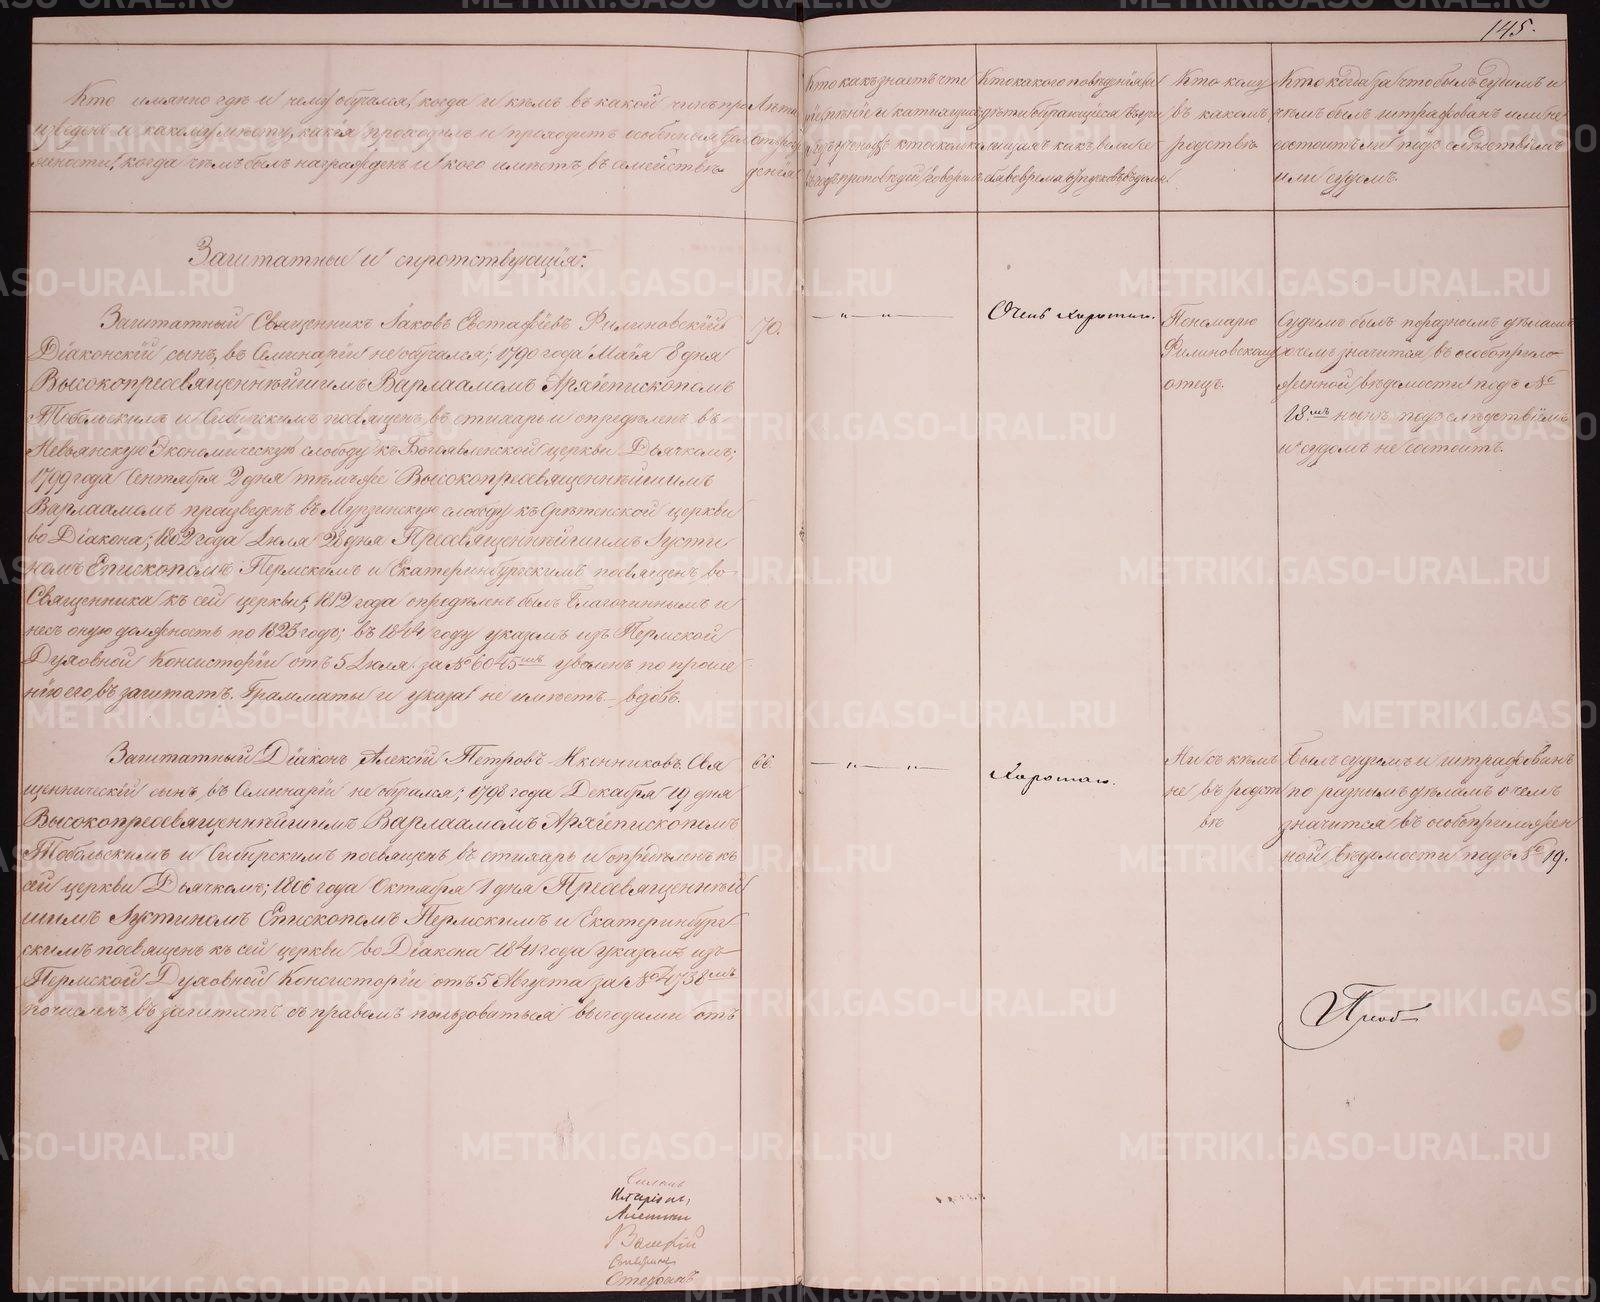 145.
Кто имянно гдѣ и чему обучался, когда и кѣмъ въ какой чинъ про
изведенъ и какому мѣсту, какія проходилъ и проходитъ особенныя дол
жности, когда чѣмъ былъ награжденъ и кого имѣетъ въ семействѣ
Лѣта
отъ рож
денія
Кто какъ знаетъ чте
ніе, пѣніе и катихизисъ
проповѣдей говорилъ
Кто какого поведенія
Кто кому
въ какомъ
родствѣ
Кто когда за что былъ судимъ и
чѣмъ былъ штрафованъ или не
состоитъ ли подъ слѣдствіемъ
или судомъ.
Заштатныи и сиротствующія:
Заштатный Священникъ Іаковъ Евстафіевъ Филиновскій
Діаконскій сынъ, въ Семинаріи не обучался; 1790 года Маія 8 дня
Высокопреосвященнѣйшимъ Варлаамомъ Архіепископомъ
Тобольскимъ и Сибирскимъ посвященъ въ стихарь и опредѣленъ въ
Невьянскую Экономическую слободу къ Богоявленской церкви Дьячкомъ;
1799 года Сентября 2 дня тѣмъ же Высокопреосвященнѣйшимъ
Варлаамомъ произведенъ въ Мурзинскую слободу къ Срѣтенской церкви
во Діакона; 1802 года Іюля 28 дня Преосвященнѣйшимъ Іусти
номъ Епископомъ Пермскимъ и Екатеринбургскимъ посвященъ во
Священника къ сей церкви; 1812 года опредѣленъ былъ Благочиннымъ и
несъ оную должность по 1823 годъ; въ 1844 году указомъ изъ Пермской
Духовной Консисторіи отъ 5 Іюля за № 6045мъ уволенъ по проше
нію его, въ заштатъ. Грамматы и указа не имѣетъ. вдовъ.
70.
— „ — „ —
Очень хорошаго.
Пономарю
Филиновскому
отецъ.
Судимъ былъ по разнымъ дѣламъ
о чемъ значится въ особо прило
женной вѣдомости подъ №
18мъ нынѣ подъ слѣдствіемъ
и судомъ не состоитъ.
Заштатный Діаконъ Алексій Петровъ Иконниковъ. Свя
щенническій сынъ, въ Семинаріи не обучался; 1798 года Декабря 19 дня
Высокопреосвященнѣйшимъ Варлаамомъ Архіепископомъ
Тобольскимъ и Сибирскимъ посвященъ въ стихарь и опредѣленъ къ
сей церкви Дьячкомъ; 1806 года Октября 1 дня Преосвященнѣй
шимъ Іустиномъ Епископомъ Пермскимъ и Екатеринбург
скимъ посвященъ къ сей церкви во Діакона 1841 года указомъ изъ
Пермской Духовной Консисторіи отъ 5 Августа за № 4738мъ
почисленъ въ заштатъ съ правомъ пользоваться выгодами отъ
66.
— „ — „ —
Хорошаго.
Ни съ кѣмъ
не въ родст
вѣ
Былъ судимъ и штрафованъ
по разнымъ дѣламъ о чемъ
значится въ особо приложен
ной вѣдомости подъ № 19.
Валерій
Стефанъ
METRIKI.GASO-URAL.RU